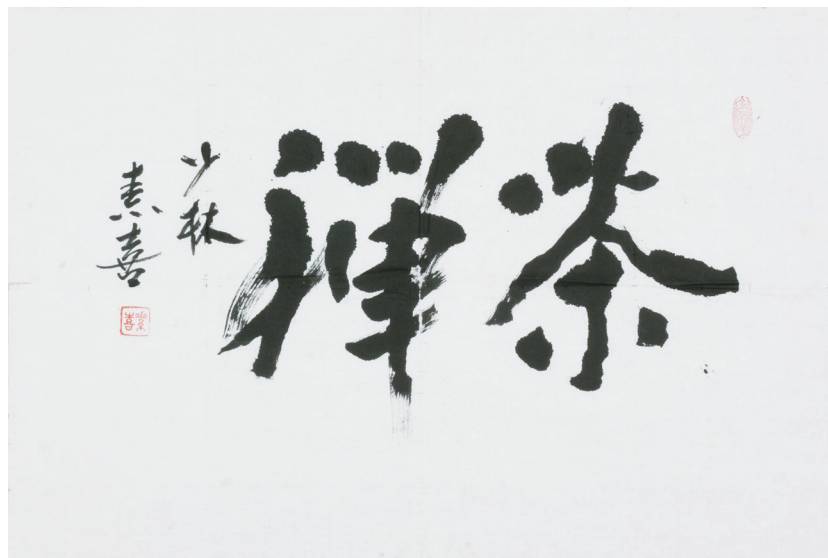 茶禅
少林
素喜
素喜